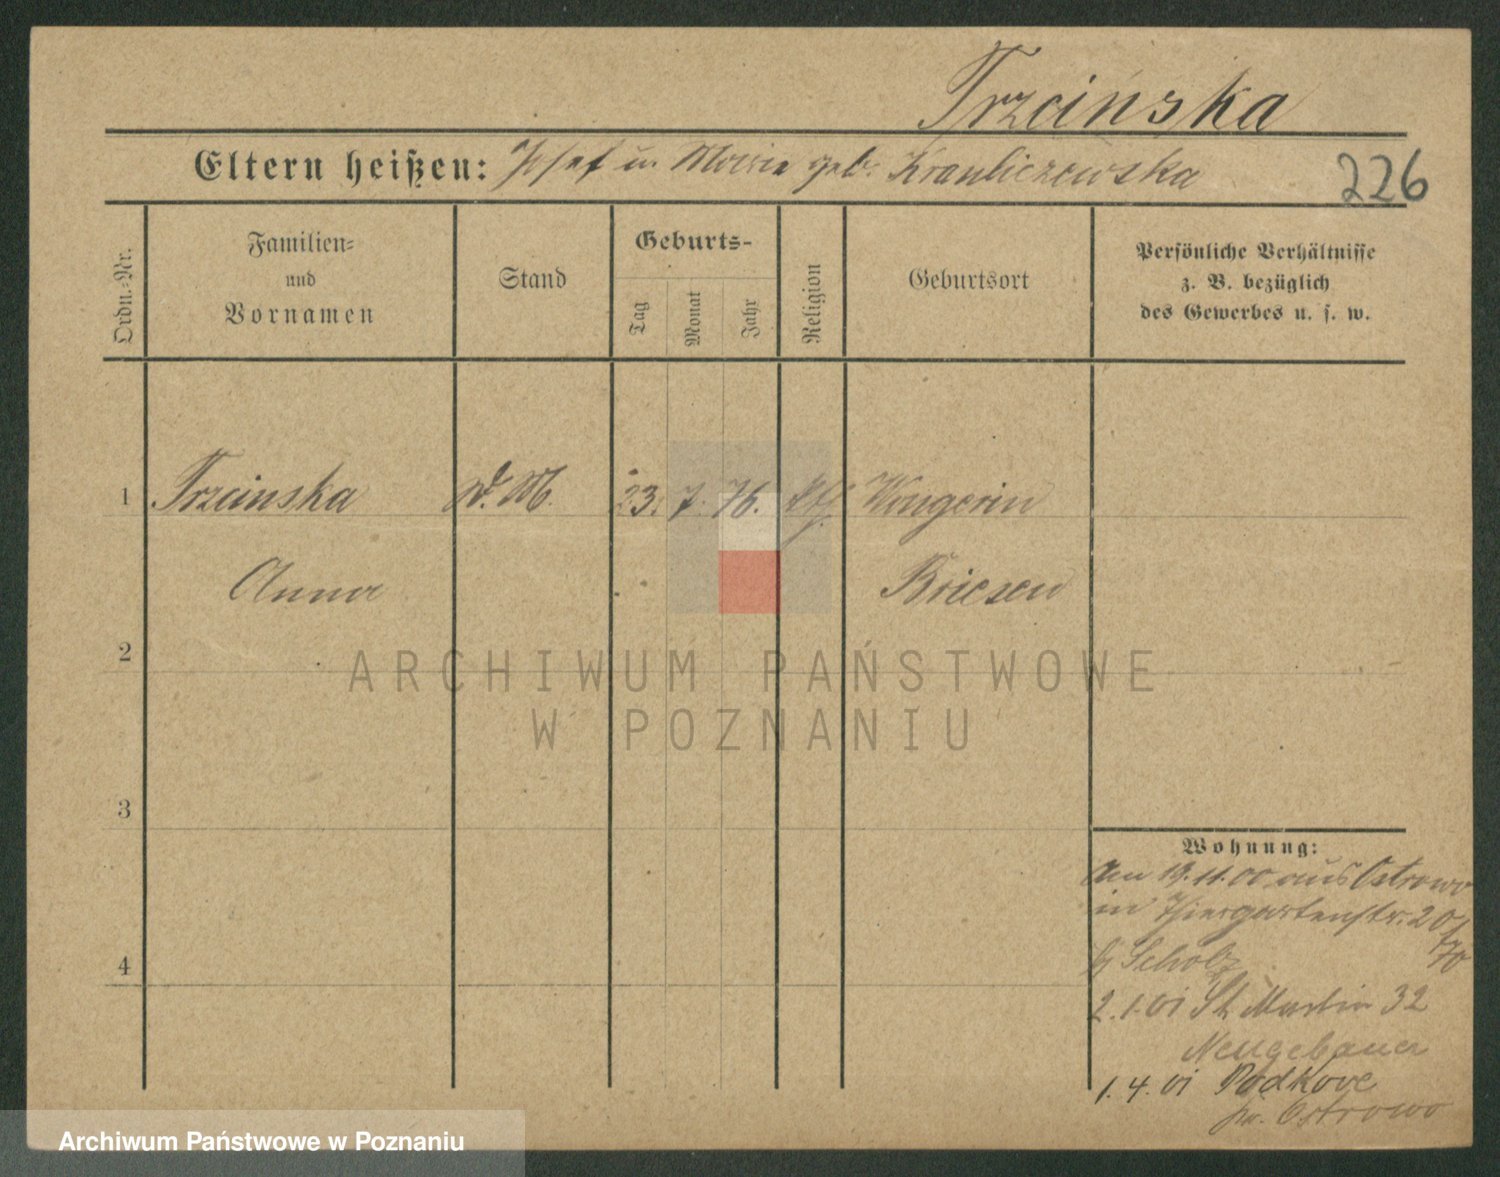 Trzcińska
Eltern heißen: Josef u. Maria geb.
226
Ordn.-Nr.
Familien-
und
Vornamen
Stand
Geburts-
Tag
Monat
Jahr
Religion
Geburtsort
Persönliche Verhältnisse
z. B. bezüglich
des Gewerbes u. s. w.
1 Trzcinska D. M. 23. 7. 76. Wongerin
Anna Briesen
2
ARCHIWUM PAŃSTWOWE
W POZNANIU
3
Wohnung:
Am 19.11.00 aus Ostrowo
in Thiergartenstr. 20
b/ Scholz
4
2.1.01 St. Martin 32
Neugebauer
1.4.01 Podkoce
Ostrowo
Archiwum Państwowe w Poznaniu